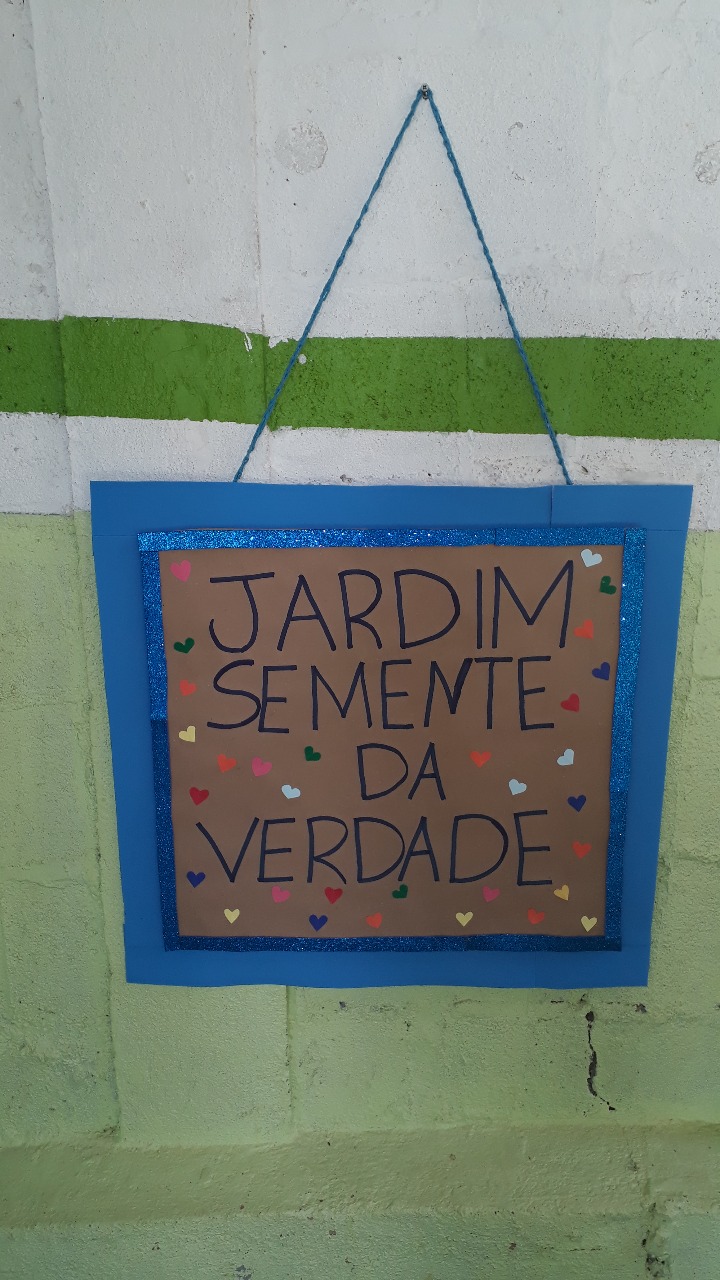 JARDIM
SEMENTE
DA
VERDADE